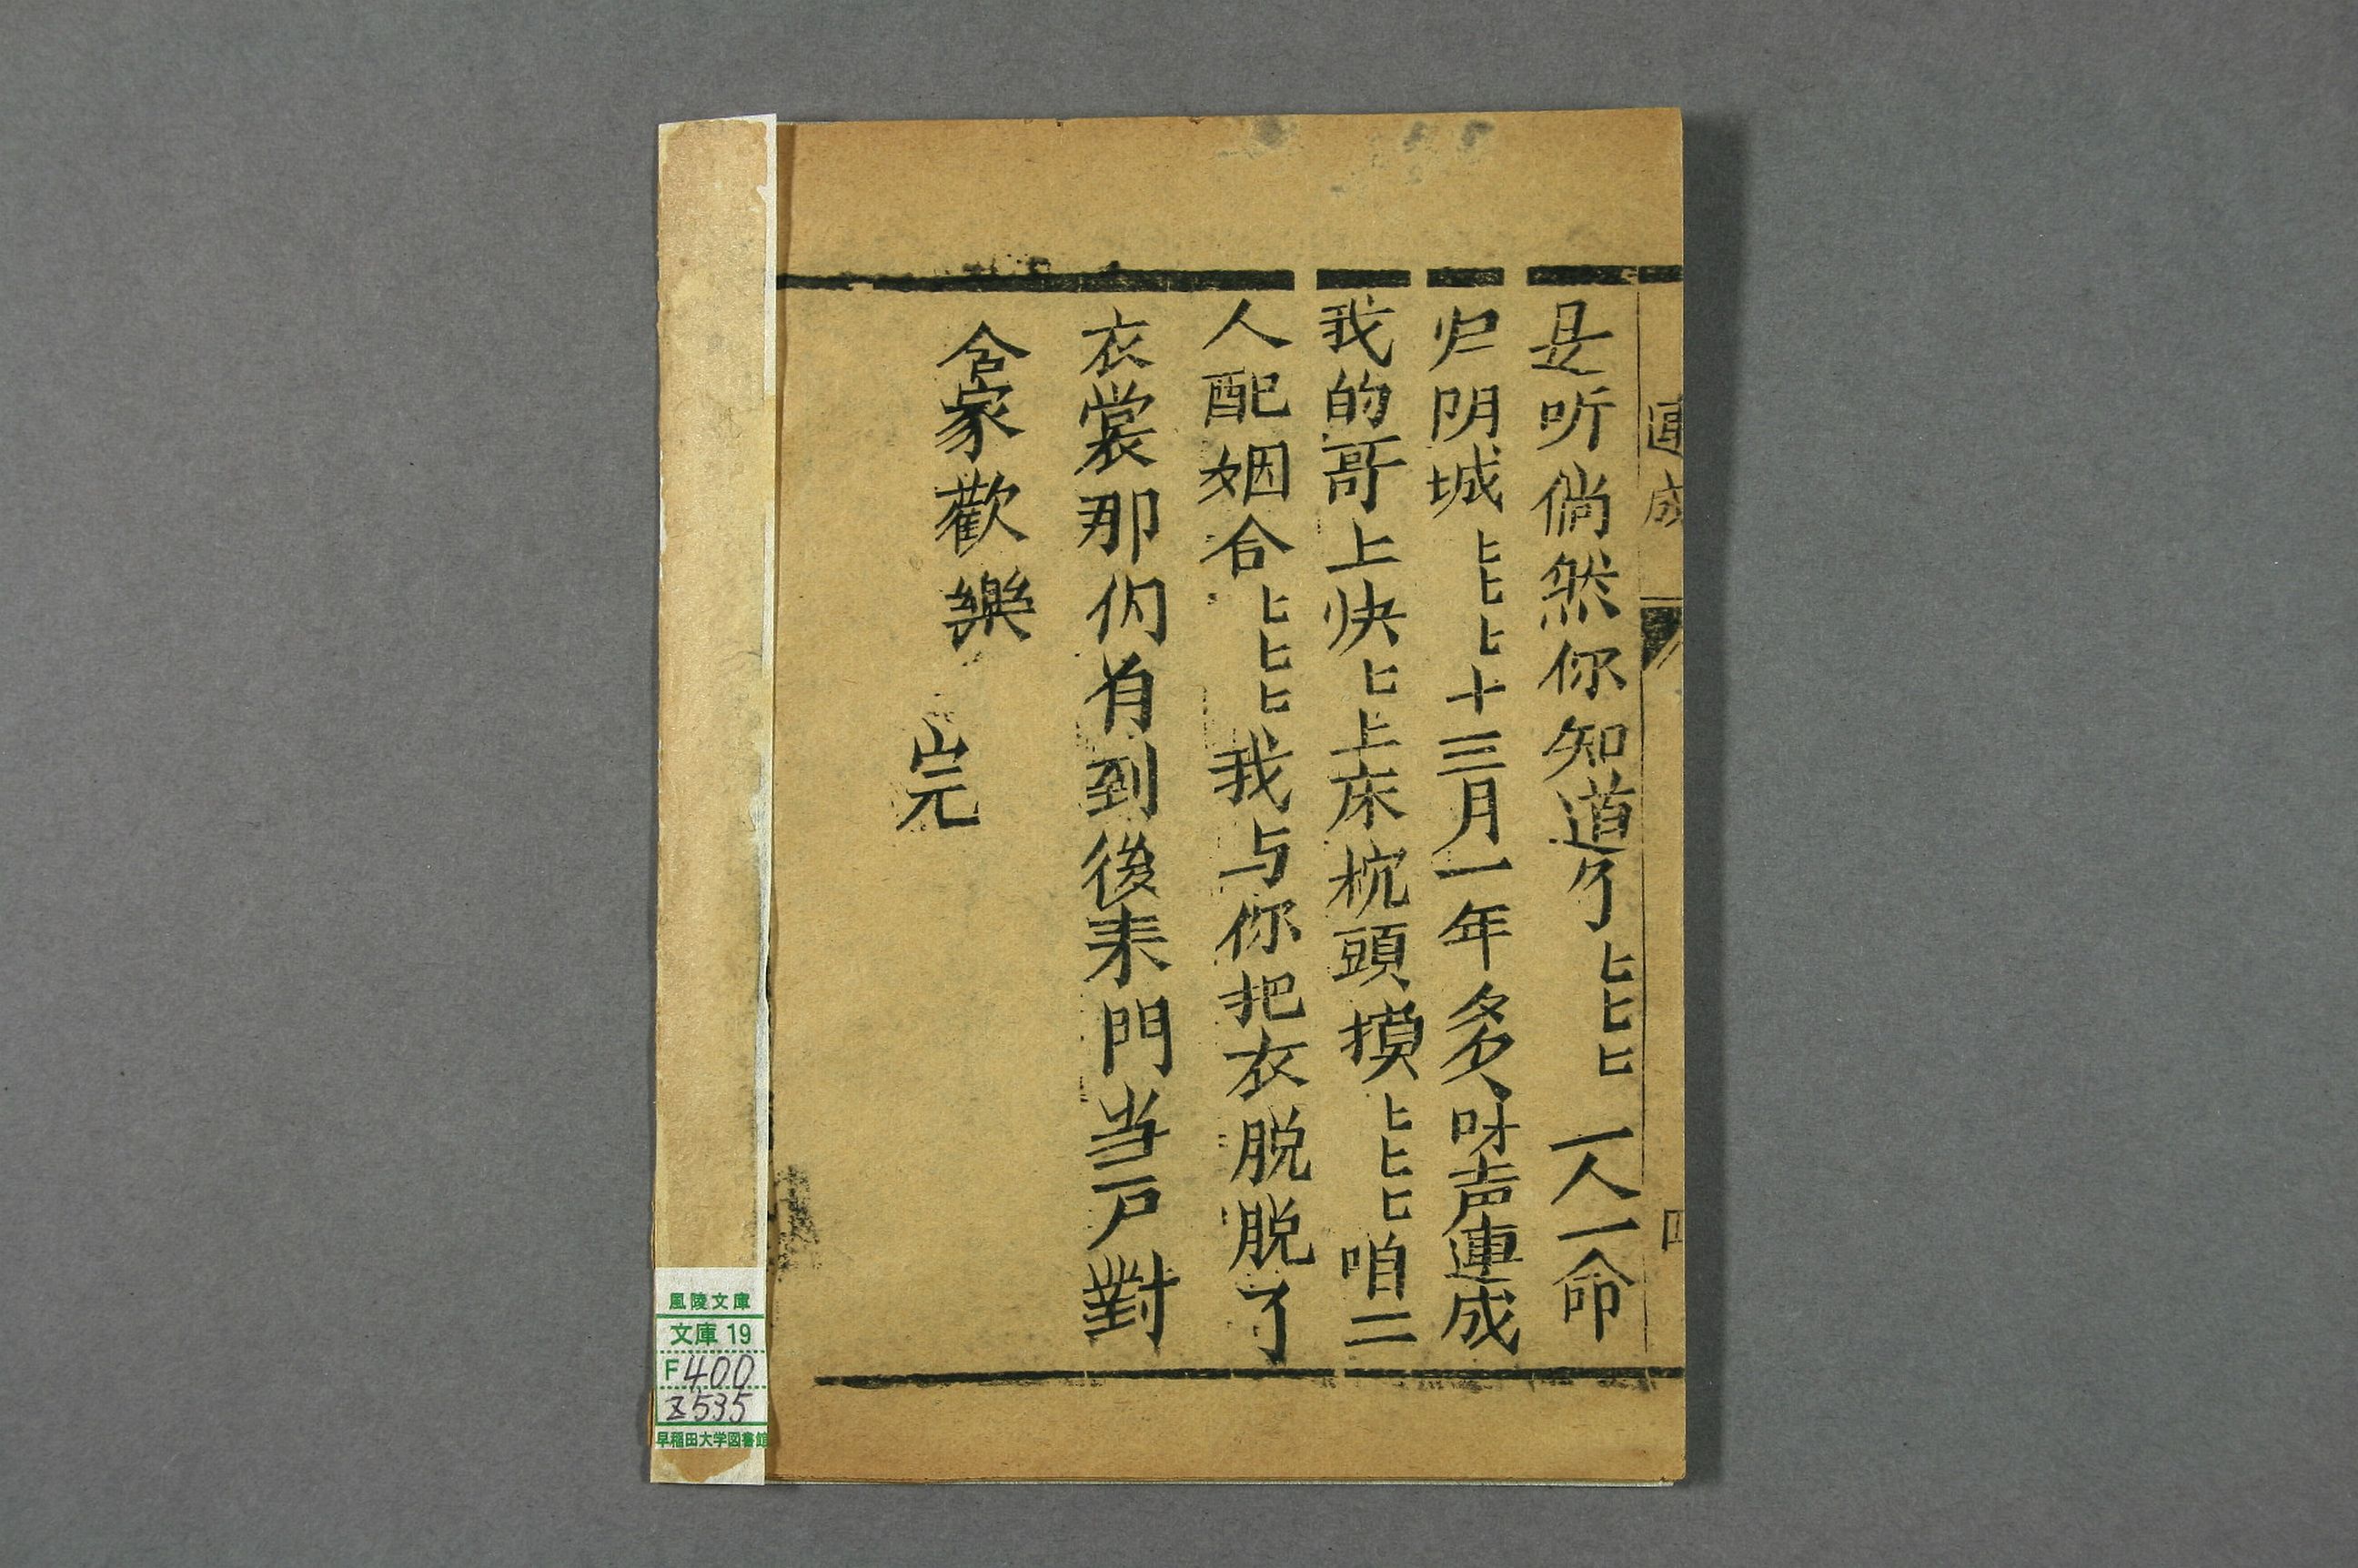 是听倘然你知道了〻〻〻一人一命
归阴城〻〻〻十三月一年多哎声連成
我的哥上快〻上床枕頭摸〻〻〻咱二
人配姻合〻〻〻我与你把衣脱脱了
衣裳那們有到後来門当户對
合家歡樂 完
成
四
風陵文庫
文庫 19
F400
Z535
早稲田大学図書館